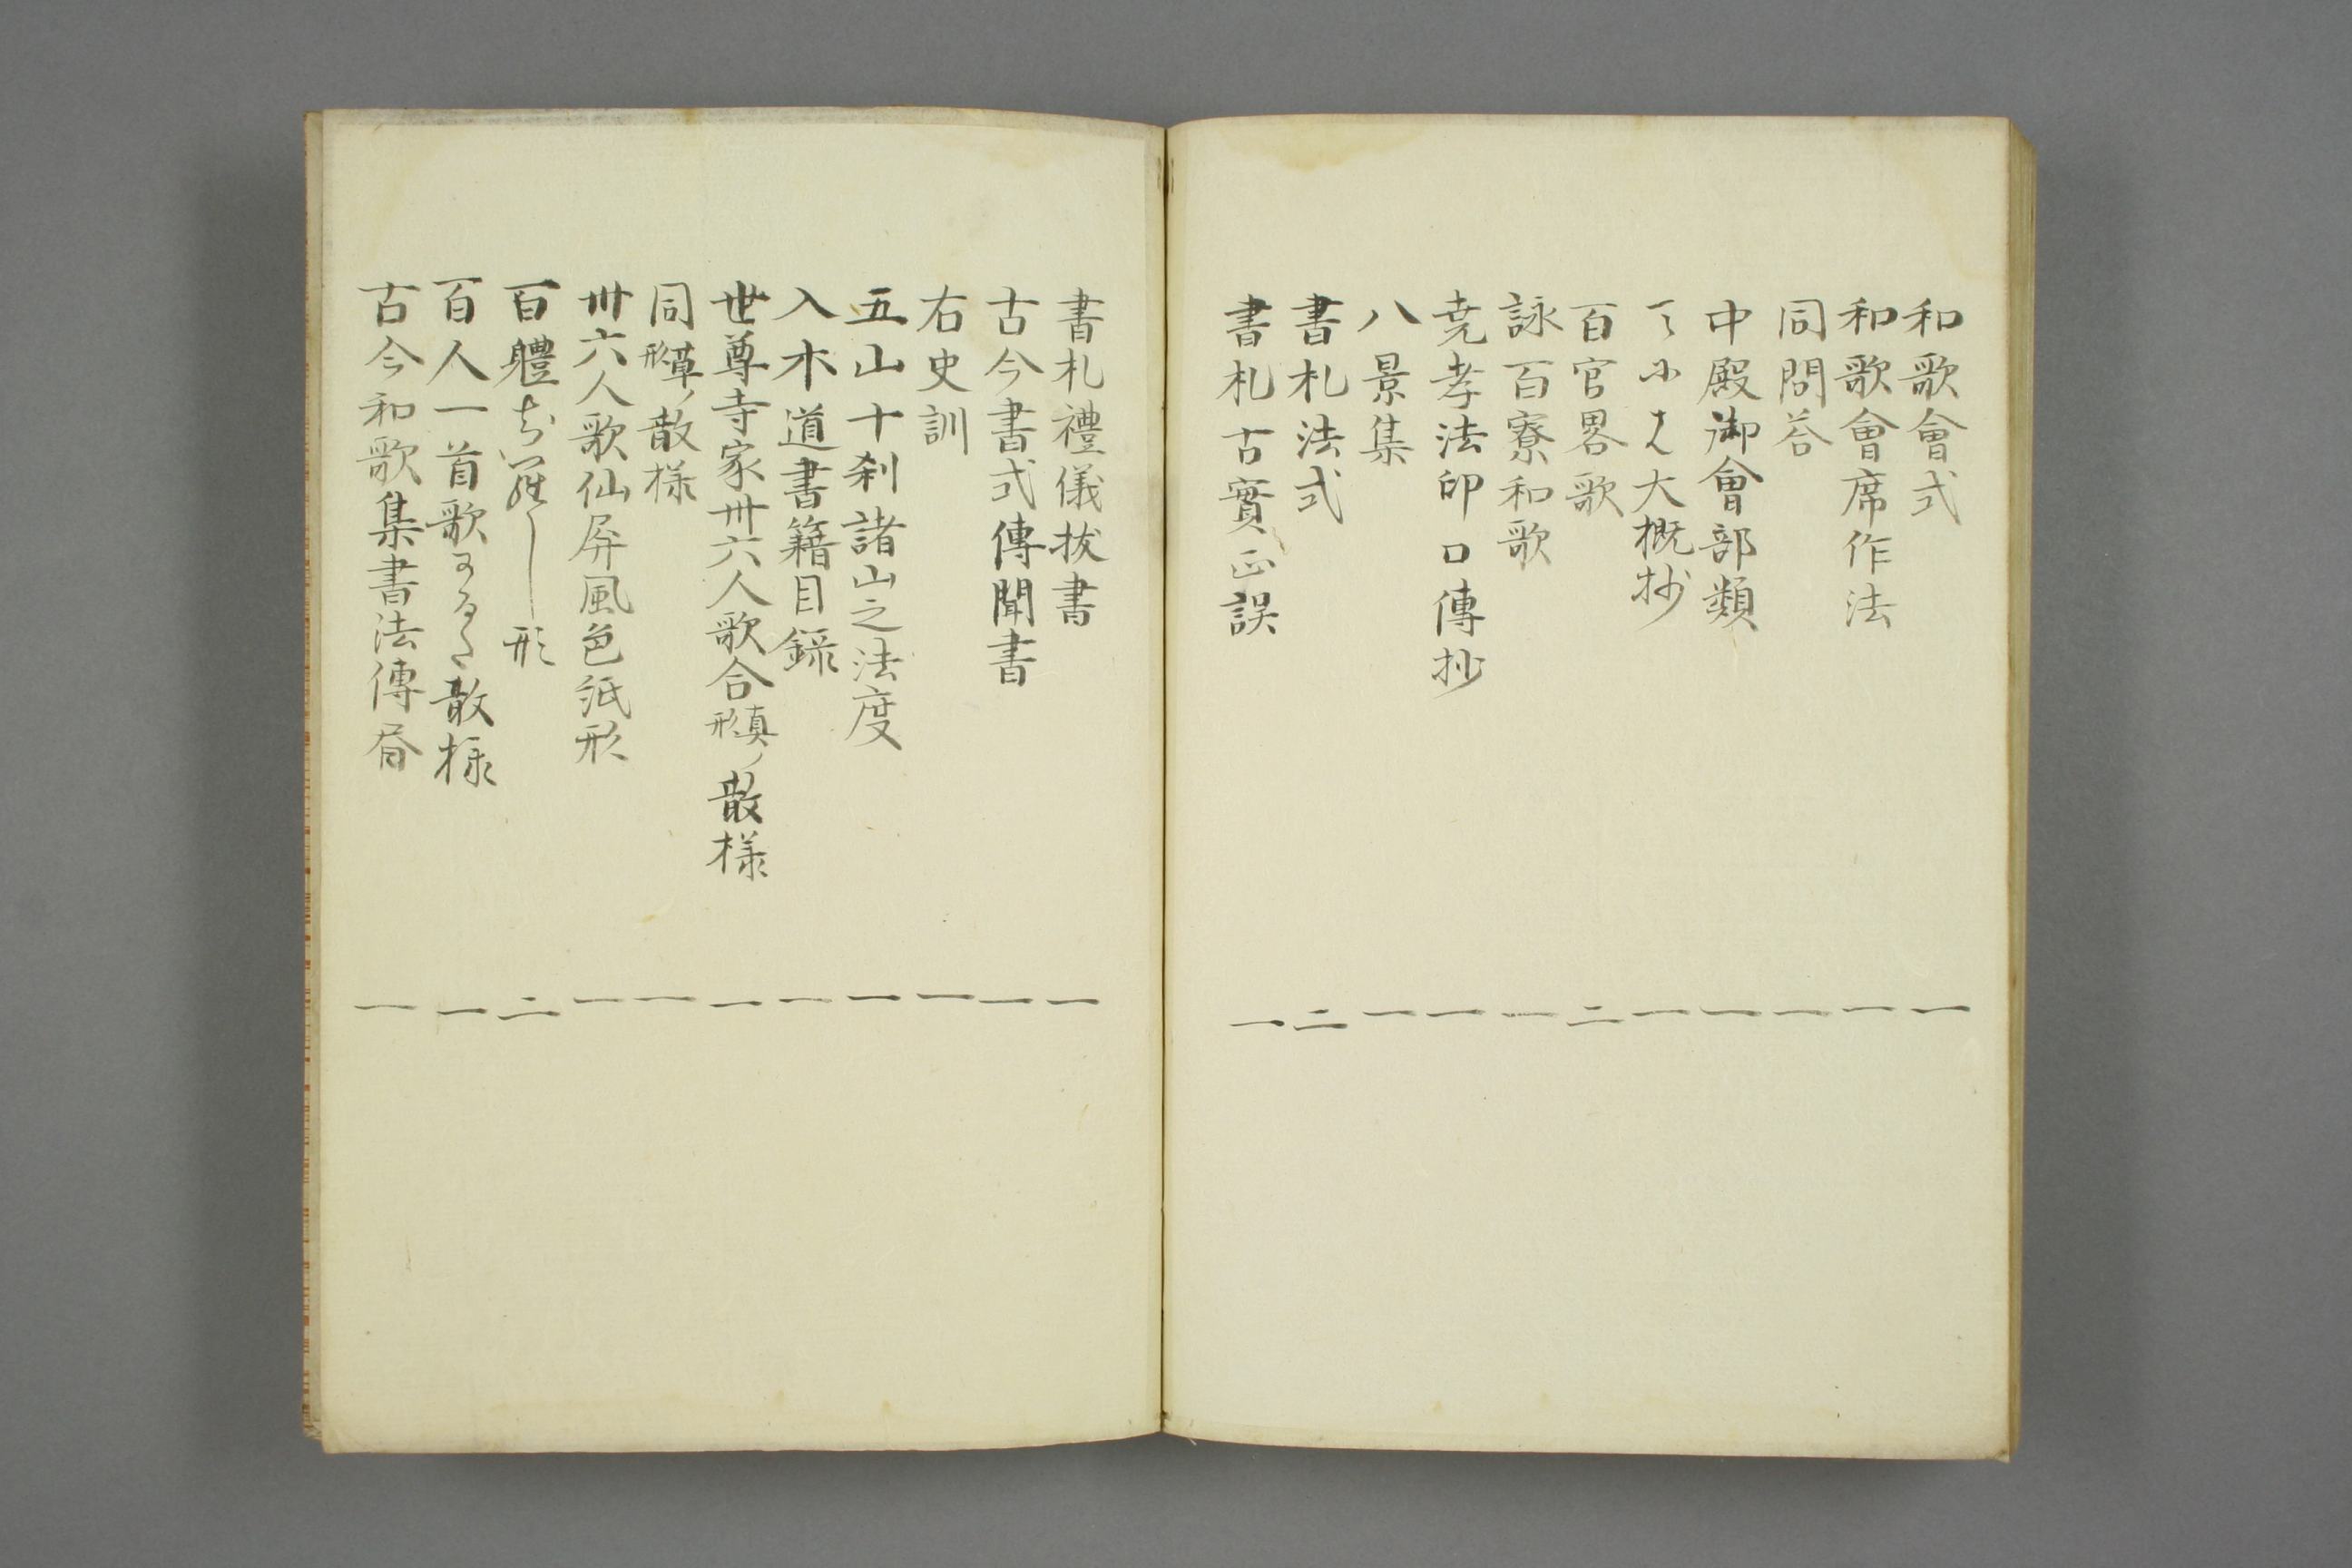 和歌會式 一
和歌會席作法 一
同問荅 一
中殿御會部類 一
てにをは大概抄 一
百官畧歌 二
詠百寮和歌 一
尭孝法印口傳抄 一
八景集 一
書札法式 二
書札古實正誤 一
書札禮儀拔書 一
古今書式傳聞書 一
右史訓 一
五山十刹諸山之法度 一
入木道書籍目錄 一
世尊寺家卅六人歌合真ノ形散様 一
同草ノ形散様 一
卅六人歌仙屏風色紙形 一
百軆ちらし形 二
百人一首歌かるた散様 一
古今和歌集書法傳 一